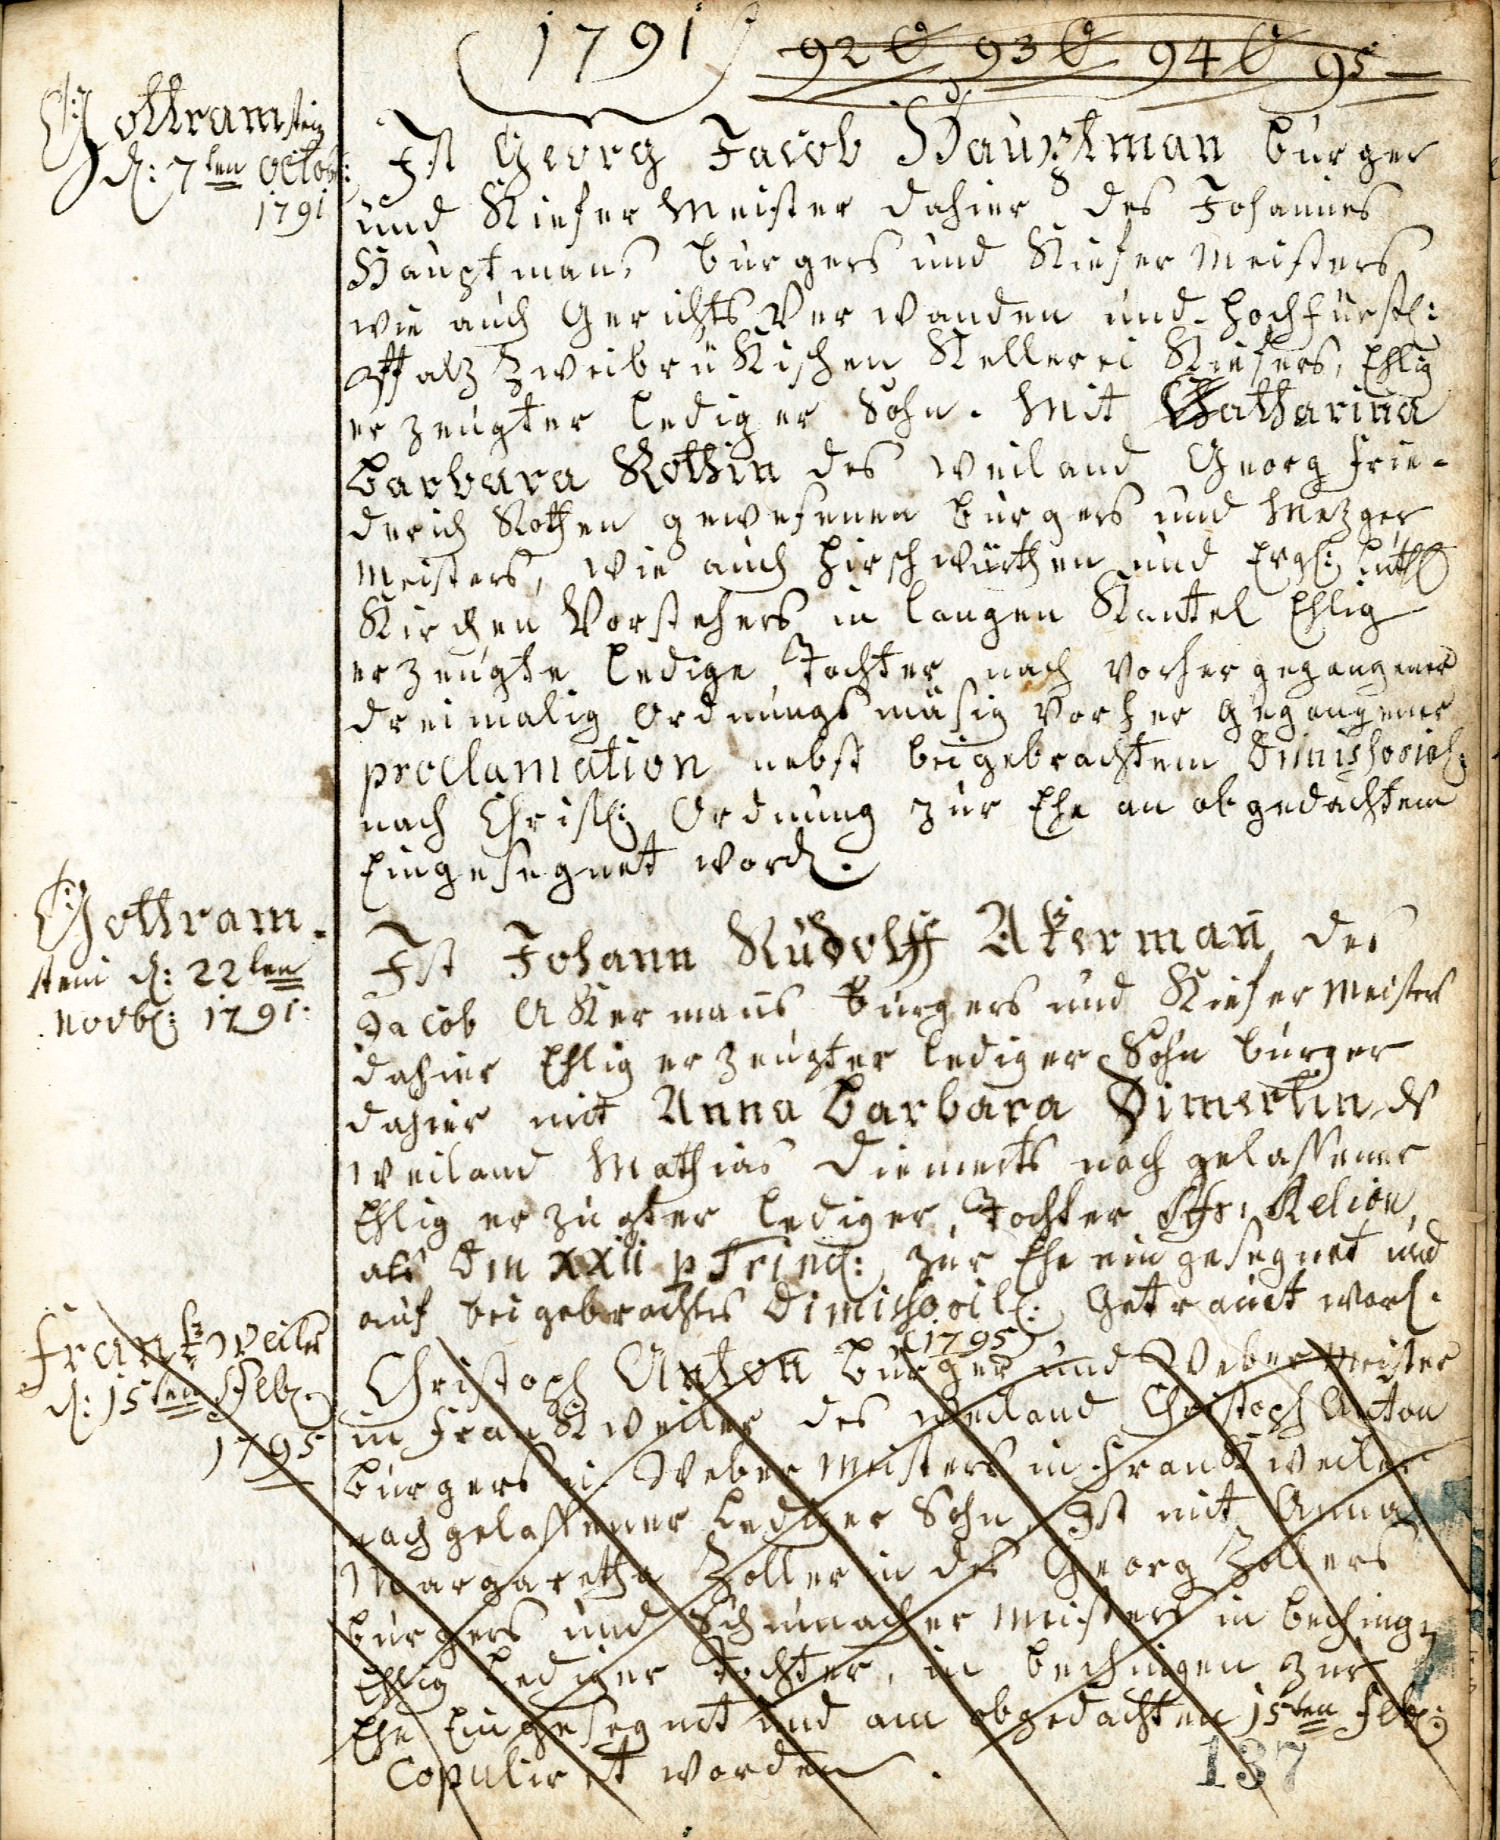 1791 92 & 93 & 94 & 95
Gottramstein
d: 7ten Octob:
1791
Ist Georg Jacob Hauptman burger
und Kiefer Meister dahier des Johannes
Hauptmans burgers und Kiefer Meisters
wie auch Gerichts Verwanden und hochfürstl:
Pfalz Zweibrükischen Kellerei Kiefers, Ehlig
erzeugter lediger Sohn. Mit Catharina
Barbara Rothin des weiland Georg Frie-
derich Rothen gewesenen burgers und Mezger
Meisters, wie auch hirschwürthen und Luth
Kirchen Vorstehers in langen Kantel Ehlig
erzeugte ledige Tochter nach vorhergegangener
dreimalig ordnungsmäsig vorher gegangener
proclamation nebst beigebrachtem Dimissorial:
nach Christl: Ordnung zur Ehe an obgedachtem
Eingesegnet word.
Gottram-
stein d: 22ten
Novb: 1791:
Ist Johann Rudolff Akermañ des
Jacob Akermañs burgers und Kiefer Meisters
dahier Ehlig erzeugter lediger Sohn burger
dahier mit Anna Barbara Dimertin ds
weiland Mathias Diemerts nach gelassener
Ehlig erzugter lediger Tochter
als Dm XXII p Trinit: zur Ehe eingesegnet und
auf beigebrachtes Dimissoril: Getraut word.
(1795)
Frankweiler
d: 15ten Feb.
1795
Christoph Anton burger und Weber Meister
in Frankweiler des weiland Christoph Anton
burgers u. Weber Meisters in Frankweiler
nachgelassener lediger Sohn, Ist mit Anna
Margaretha Zollerin des Georg Zollers
burgers und Schumacher Meisters in beching
Ehlig lediger Tochter, in bechingen zur
Ehe Eingesegnet und am obgedachten 15ten Feb:
Copuliret worden.
137